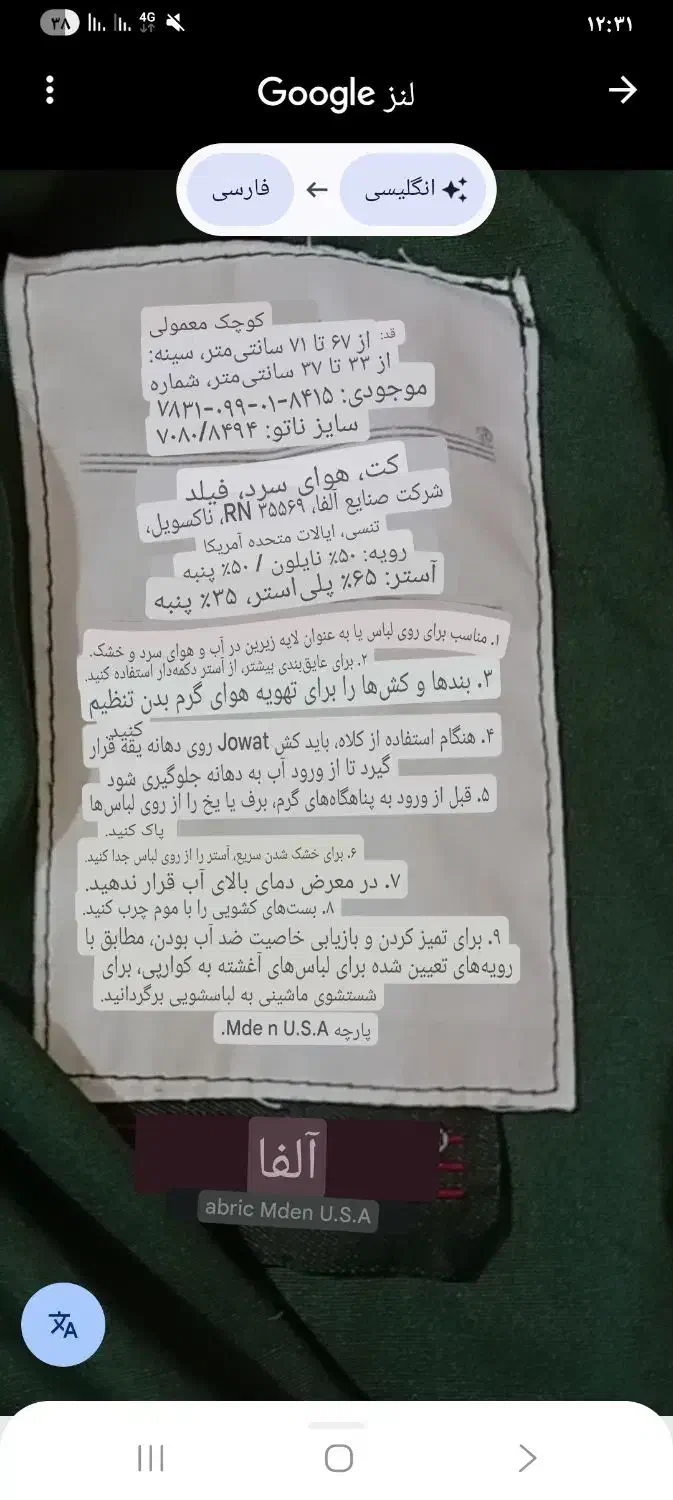 ۳۸
4G
۱۲:۳۱
Google لنز
انگلیسی
فارسی
کوچک معمولی
قد: از ۶۷ تا ۷۱ سانتی‌متر، سینه:
از ۳۳ تا ۳۷ سانتی‌متر، شماره
موجودی: ۸۴۱۵-۰۱-۰۹۹-۷۸۳۱
سایز ناتو: ۷۰۸۰/۸۴۹۴
کت، هوای سرد، فیلد
شرکت صنایع آلفا، RN ۳۵۵۶۹، ناکسویل،
تنسی، ایالات متحده آمریکا
رویه: ۵۰٪ نایلون / ۵۰٪ پنبه
آستر: ۶۵٪ پلی‌استر، ۳۵٪ پنبه
۱. مناسب برای روی لباس یا به عنوان لایه زیرین در آب و هوای سرد و خشک.
۲. برای عایق‌بندی بیشتر، از آستر دکمه‌دار استفاده کنید.
۳. بندها و کش‌ها را برای تهویه هوای گرم بدن تنظیم
کنید.
۴. هنگام استفاده از کلاه، باید کش Jowat روی دهانه یقه قرار
گیرد تا از ورود آب به دهانه جلوگیری شود
۵. قبل از ورود به پناهگاه‌های گرم، برف یا یخ را از روی لباس‌ها
پاک کنید.
۶. برای خشک شدن سریع، آستر را از روی لباس جدا کنید.
۷. در معرض دمای بالای آب قرار ندهید.
۸. بست‌های کشویی را با موم چرب کنید.
۹. برای تمیز کردن و بازیابی خاصیت ضد آب بودن، مطابق با
رویه‌های تعیین شده برای لباس‌های آغشته به کوارپی، برای
شستشوی ماشینی به لباسشویی برگردانید.
پارچه Mde n U.S.A.
آلفا
abric Mden U.S.A